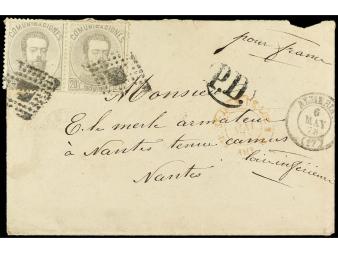 COMUNICACIONES COMUNICACIONES
20 C
pour france
P.D.
Monsieur
E. le merle armateur
6
MAY
à Nantes tenue camus
Nantes loire inférieure